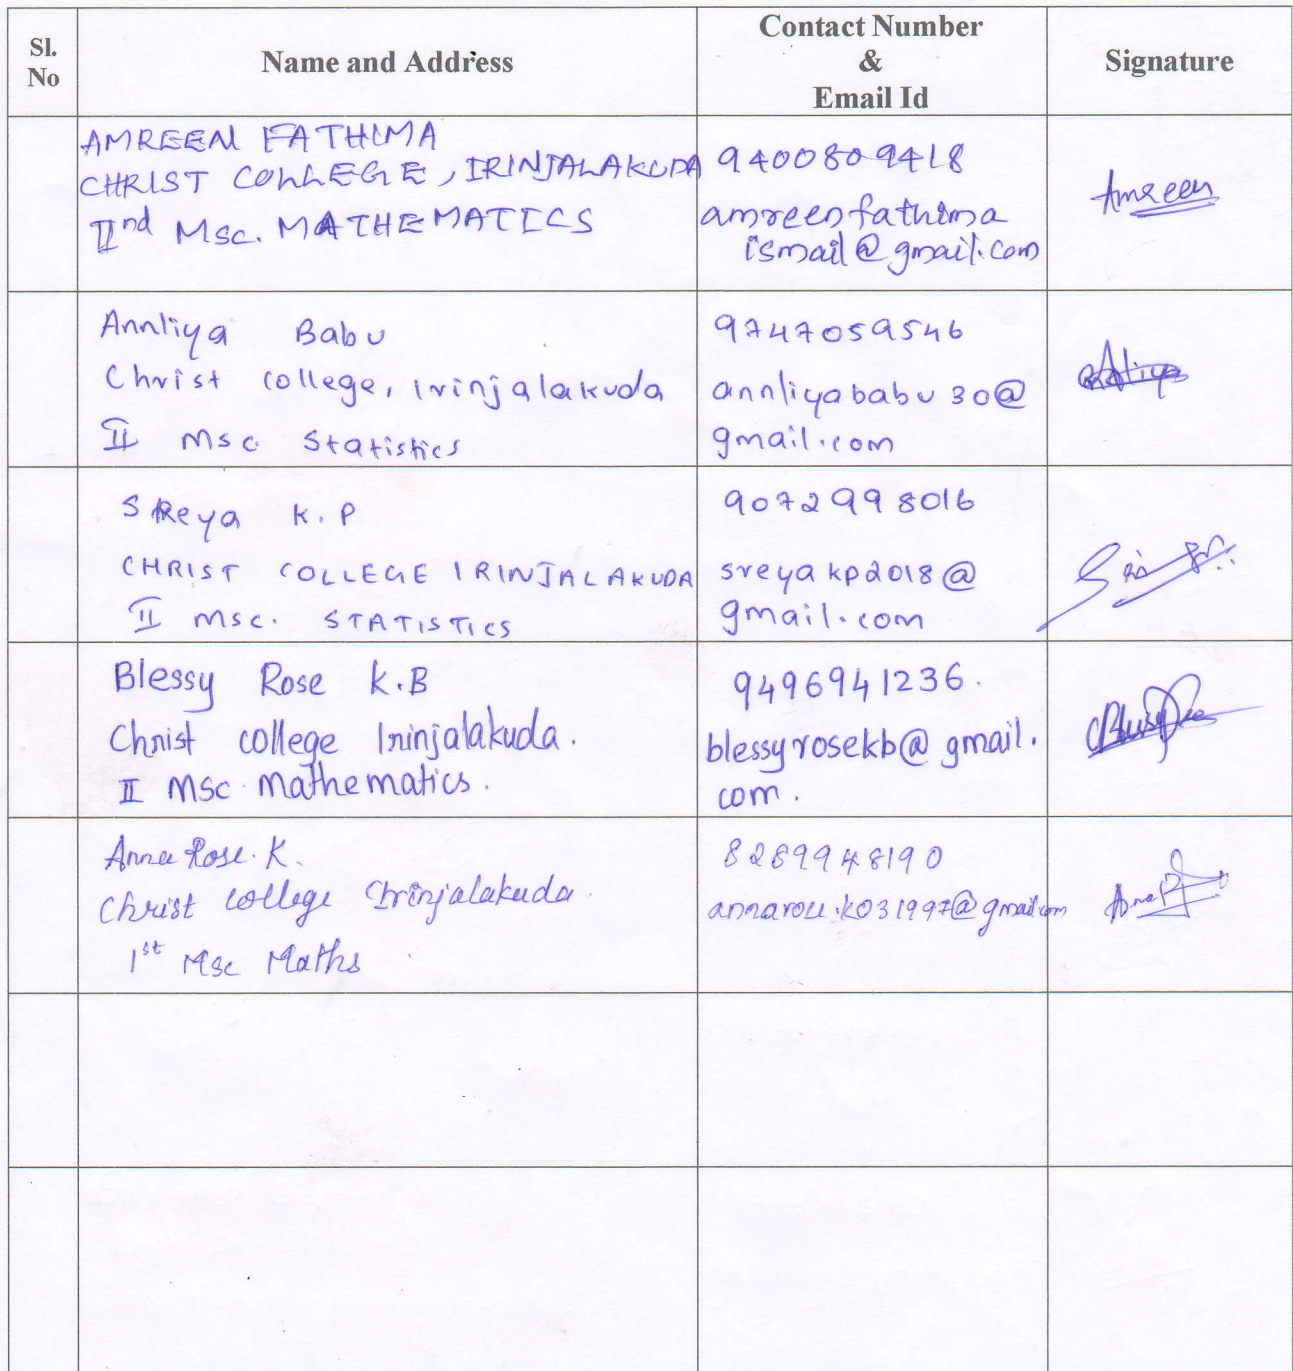 Sl.
No
Name and Address
Contact Number
&
Email Id
Signature
AMREEN FATHIMA
CHRIST COLLEGE, IRINJALAKUDA
IInd Msc. MATHEMATICS
9400809418
amreenfathima
ismail@gmail.com
Amreen
Annliya Babu
Christ college, Irinjalakuda
II msc Statistics
9747059546
annliyababu30@
gmail.com
SReya K.P
CHRIST COLLEGE IRINJALAKUDA
II msc. STATISTICS
9072998016
sreyakp2018@
gmail.com
Blessy Rose K.B
Christ college Irinjalakuda.
II Msc Mathematics.
9496941236.
blessyrosekb@gmail.
com.
Anna Rose. K.
Christ college Irinjalakuda.
1st Msc Maths
8289948190
annarose.k031997@gmail.com